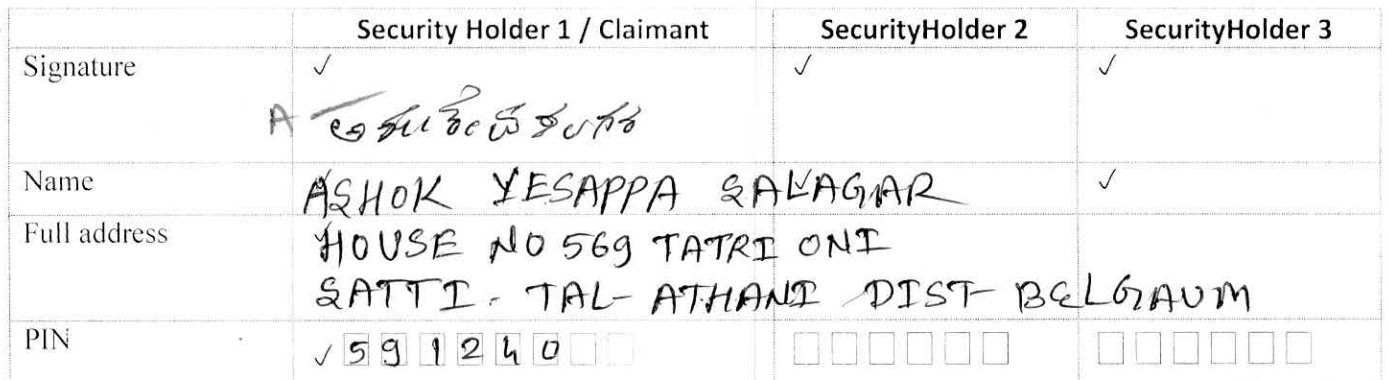 Security Holder 1 / Claimant SecurityHolder 2 SecurityHolder 3
Signature ✓ ✓ ✓
A
Name ASHOK YESAPPA SALAGAR ✓
Full address HOUSE NO 569 TATRI ONI
SATTI - TAL - ATHANI DIST - BELGAUM
PIN ✓ 5 9 1 2 4 0